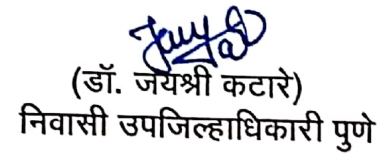 (डॉ. जयश्री कटारे)
निवासी उपजिल्हाधिकारी पुणे